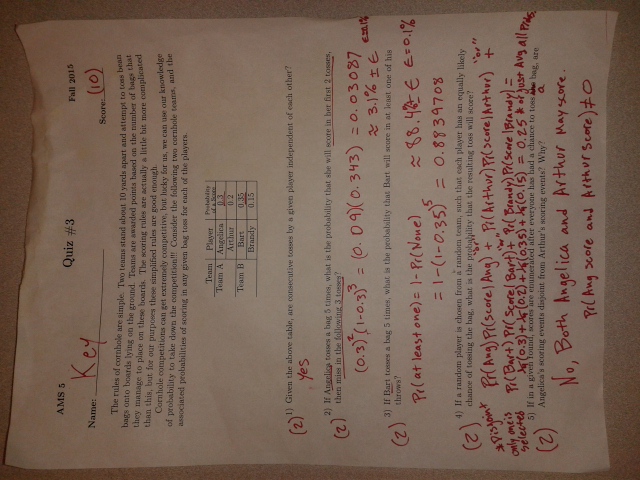 AMS 5
Quiz #3
Fall 2015
Name: Key
Score: (10)
The rules of cornhole are simple. Two teams stand about 10 yards apart and attempt to toss bean
bags onto boards lying on the ground. Teams are awarded points based on the number of bags that
they manage to place on these boards. The scoring rules are actually a little bit more complicated
than this, but for our purposes these simplified rules are good enough.
Cornhole competitions can get extremely competitive, but lucky for us, we can use our knowledge
of probability to take down the competition!!! Consider the following two cornhole teams, and the
associated probabilities of scoring in any given bag toss for each of the players.
Team Player Probability of a Score
Team A Angelica 0.3
Arthur 0.2
Team B Bart 0.35
Brandy 0.15
(2) 1) Given the above table, are consecutive tosses by a given player independent of each other?
Yes
(2) 2) If Angelica tosses a bag 5 times, what is the probability that she will score in her first 2 tosses,
then miss in the following 3 tosses?
(0.3)²(1-0.3)³ = (0.09)(0.343) = 0.03087
≈ 3.1% ± ε ε=0.1%
(2) 3) If Bart tosses a bag 5 times, what is the probability that Bart will score in at least one of his
throws?
Pr(at least one) = 1-Pr(None) ≈ 88.4% ± ε ε=0.1%
= 1-(1-0.35)⁵ = 0.8839708
(2) 4) If a random player is chosen from a random team, such that each player has an equally likely
chance of tossing the bag, what is the probability that the resulting toss will score?
*Disjoint only one is selected
Pr(Ang)Pr(score|Ang) "or" + Pr(Arthur)Pr(score|Arthur) "or" +
Pr(Bart)Pr(Score|Bart) "or" + Pr(Brandy)Pr(Score|Brandy) =
¼(0.3)+¼(0.2)+¼(0.35)+¼(0.15) = 0.25 * or just Avg all Probs.
(2) 5) If in a given round, scores are enumerated after everyone has had a chance to toss a bag, are
Angelica's scoring events disjoint from Arthur's scoring events? Why?
No, Both Angelica and Arthur may score.
Pr(Ang score and Arthur score) ≠ 0